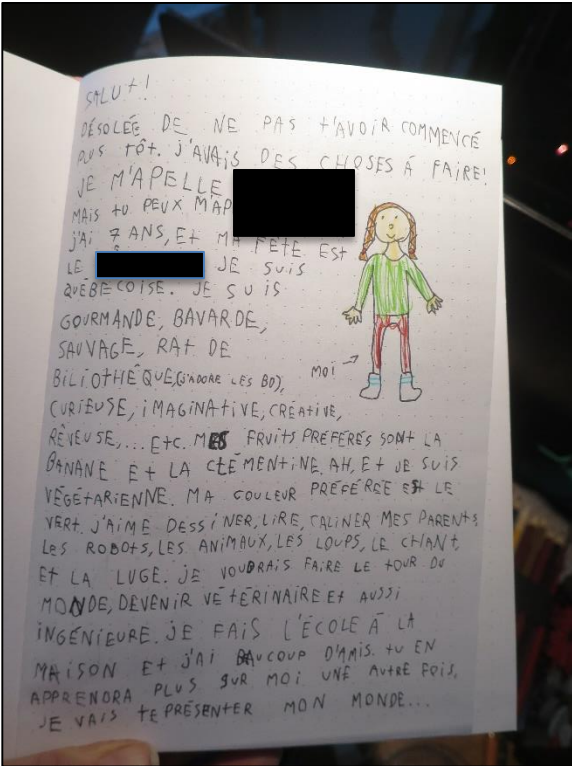 SALUT!
DÉSOLÉE DE NE PAS T'AVOIR COMMENCÉ
PLUS TÔT. J'AVAIS DES CHOSES À FAIRE!
JE M'APELLE
MAIS TU PEUX M'AP
J'AI 7 ANS, ET MA FÊTE EST
LE JE SUIS
QUÉBÉCOISE. JE SUIS
GOURMANDE, BAVARDE,
SAUVAGE, RAT DE
BILIOTHÈQUE,(J'ADORE LES BD),
CURIEUSE, IMAGINATIVE, CRÉATIVE,
RÊVEUSE,... ETC. MES FRUITS PRÉFÉRÉS SONT LA
BANANE ET LA CLÉMENTINE. AH, ET JE SUIS
VÉGÉTARIENNE. MA COULEUR PRÉFÉRÉE EST LE
VERT. J'AIME DESSINER, LIRE, CALINER MES PARENTS
LES ROBOTS, LES ANIMAUX, LES LOUPS, LE CHANT,
ET LA LUGE. JE VOUDRAIS FAIRE LE TOUR DU
MONDE, DEVENIR VÉTÉRINAIRE ET AUSSI
INGÉNIEURE. JE FAIS L'ÉCOLE À LA
MAISON ET J'AI BAUCOUP D'AMIS. TU EN
APPRENDRA PLUS SUR MOI UNE AUTRE FOIS.
JE VAIS TE PRÉSENTER MON MONDE...
MOI